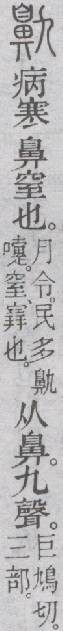 鼽
病寒鼻窒也。
月令。民多鼽
嚔。窒、𡫳也。
从鼻。九聲。
巨鳩切。
三部。